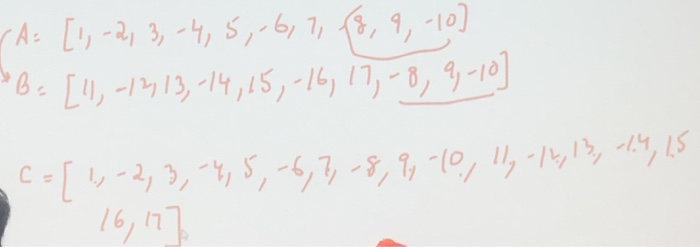 A= [1, -2, 3, -4, 5, -6, 7, -8, 9, -10]
B= [11, -12, 13, -14, 15, -16, 17, -8, 9, -10]
C = [1, -2, 3, -4, 5, -6, 7, -8, 9, -10, 11, -12, 13, -14, 15
16, 17]